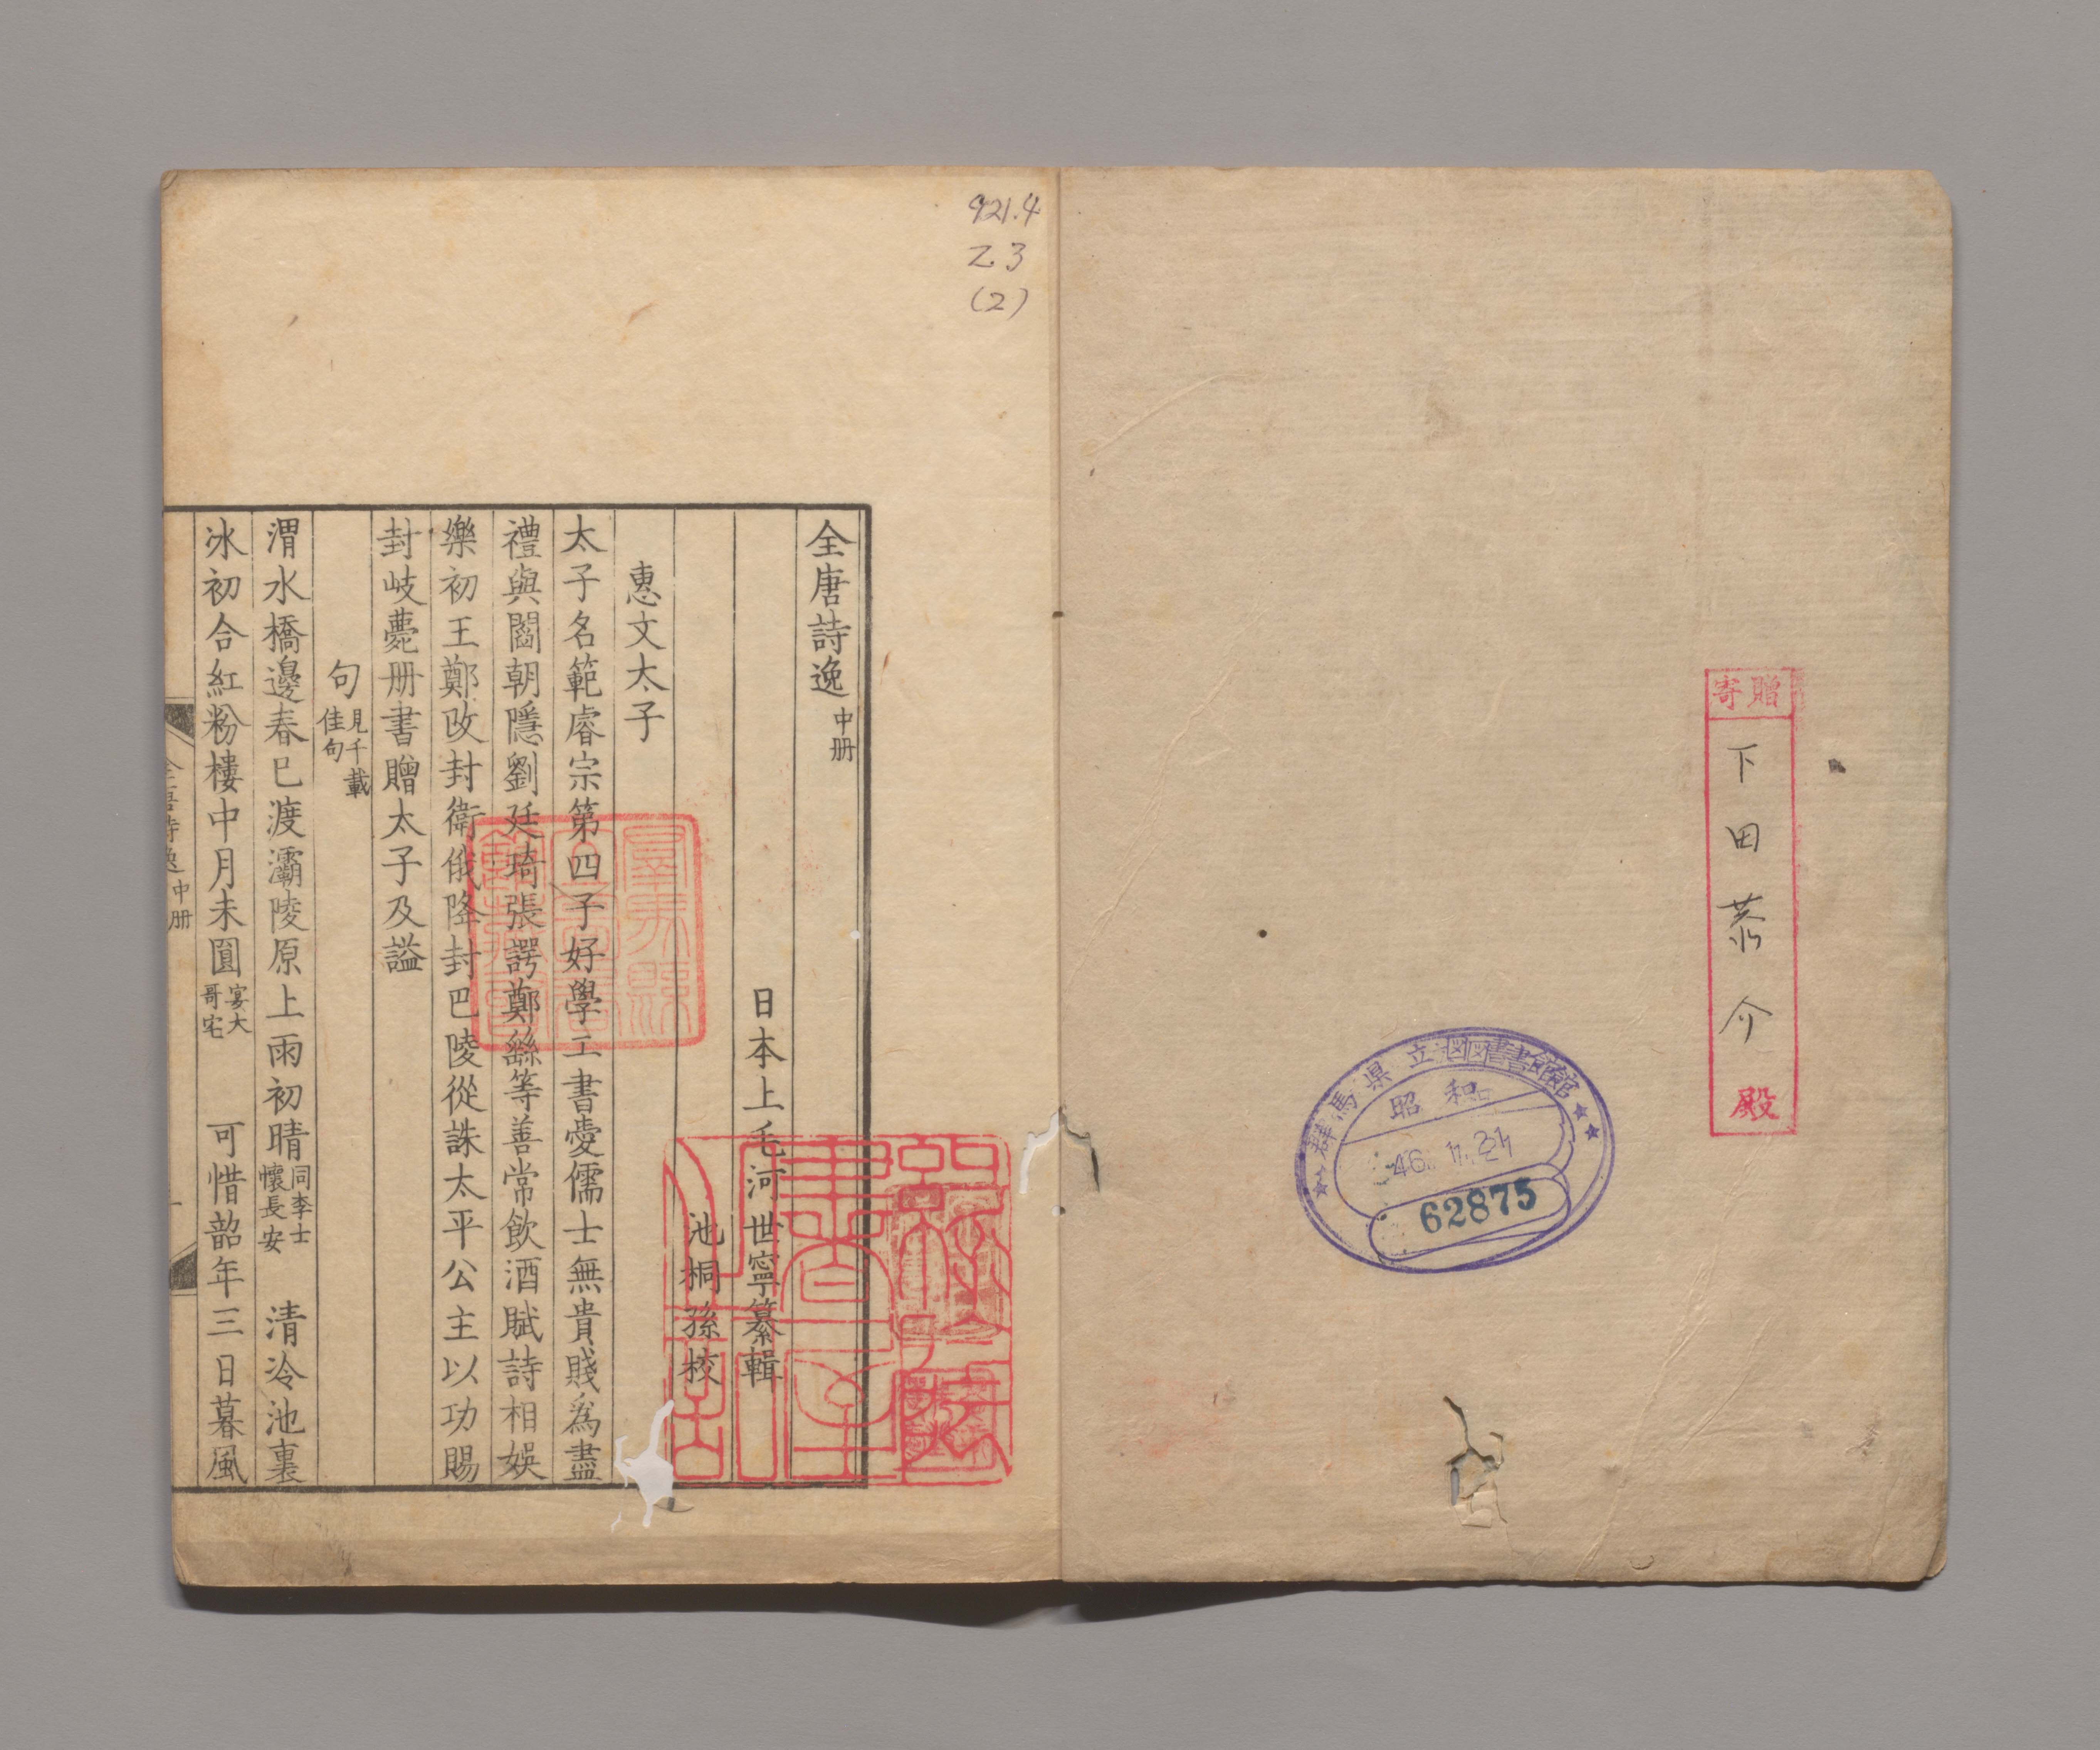 寄贈
下田恭介
殿
群馬県立図書館
昭和
46. 11. 21
62875
921.4
Z3
(2)
全唐詩逸 中册
日本上毛河世寧纂輯
池桐孫校
惠文太子
太子名範睿宗第四子好學工書愛儒士無貴賤爲盡
禮與閻朝隱劉廷琦張諤鄭繇等善常飲酒賦詩相娛
樂初王鄭改封衛俄降封巴陵從誅太平公主以功賜
封岐薨册書贈太子及謚
句 見千載佳句
渭水橋邊春已渡灞陵原上雨初晴 同李士懷長安 清冷池裏
冰初合紅粉樓中月未圓 宴大哥宅 可惜韶年三日暮風
全唐詩逸 中册